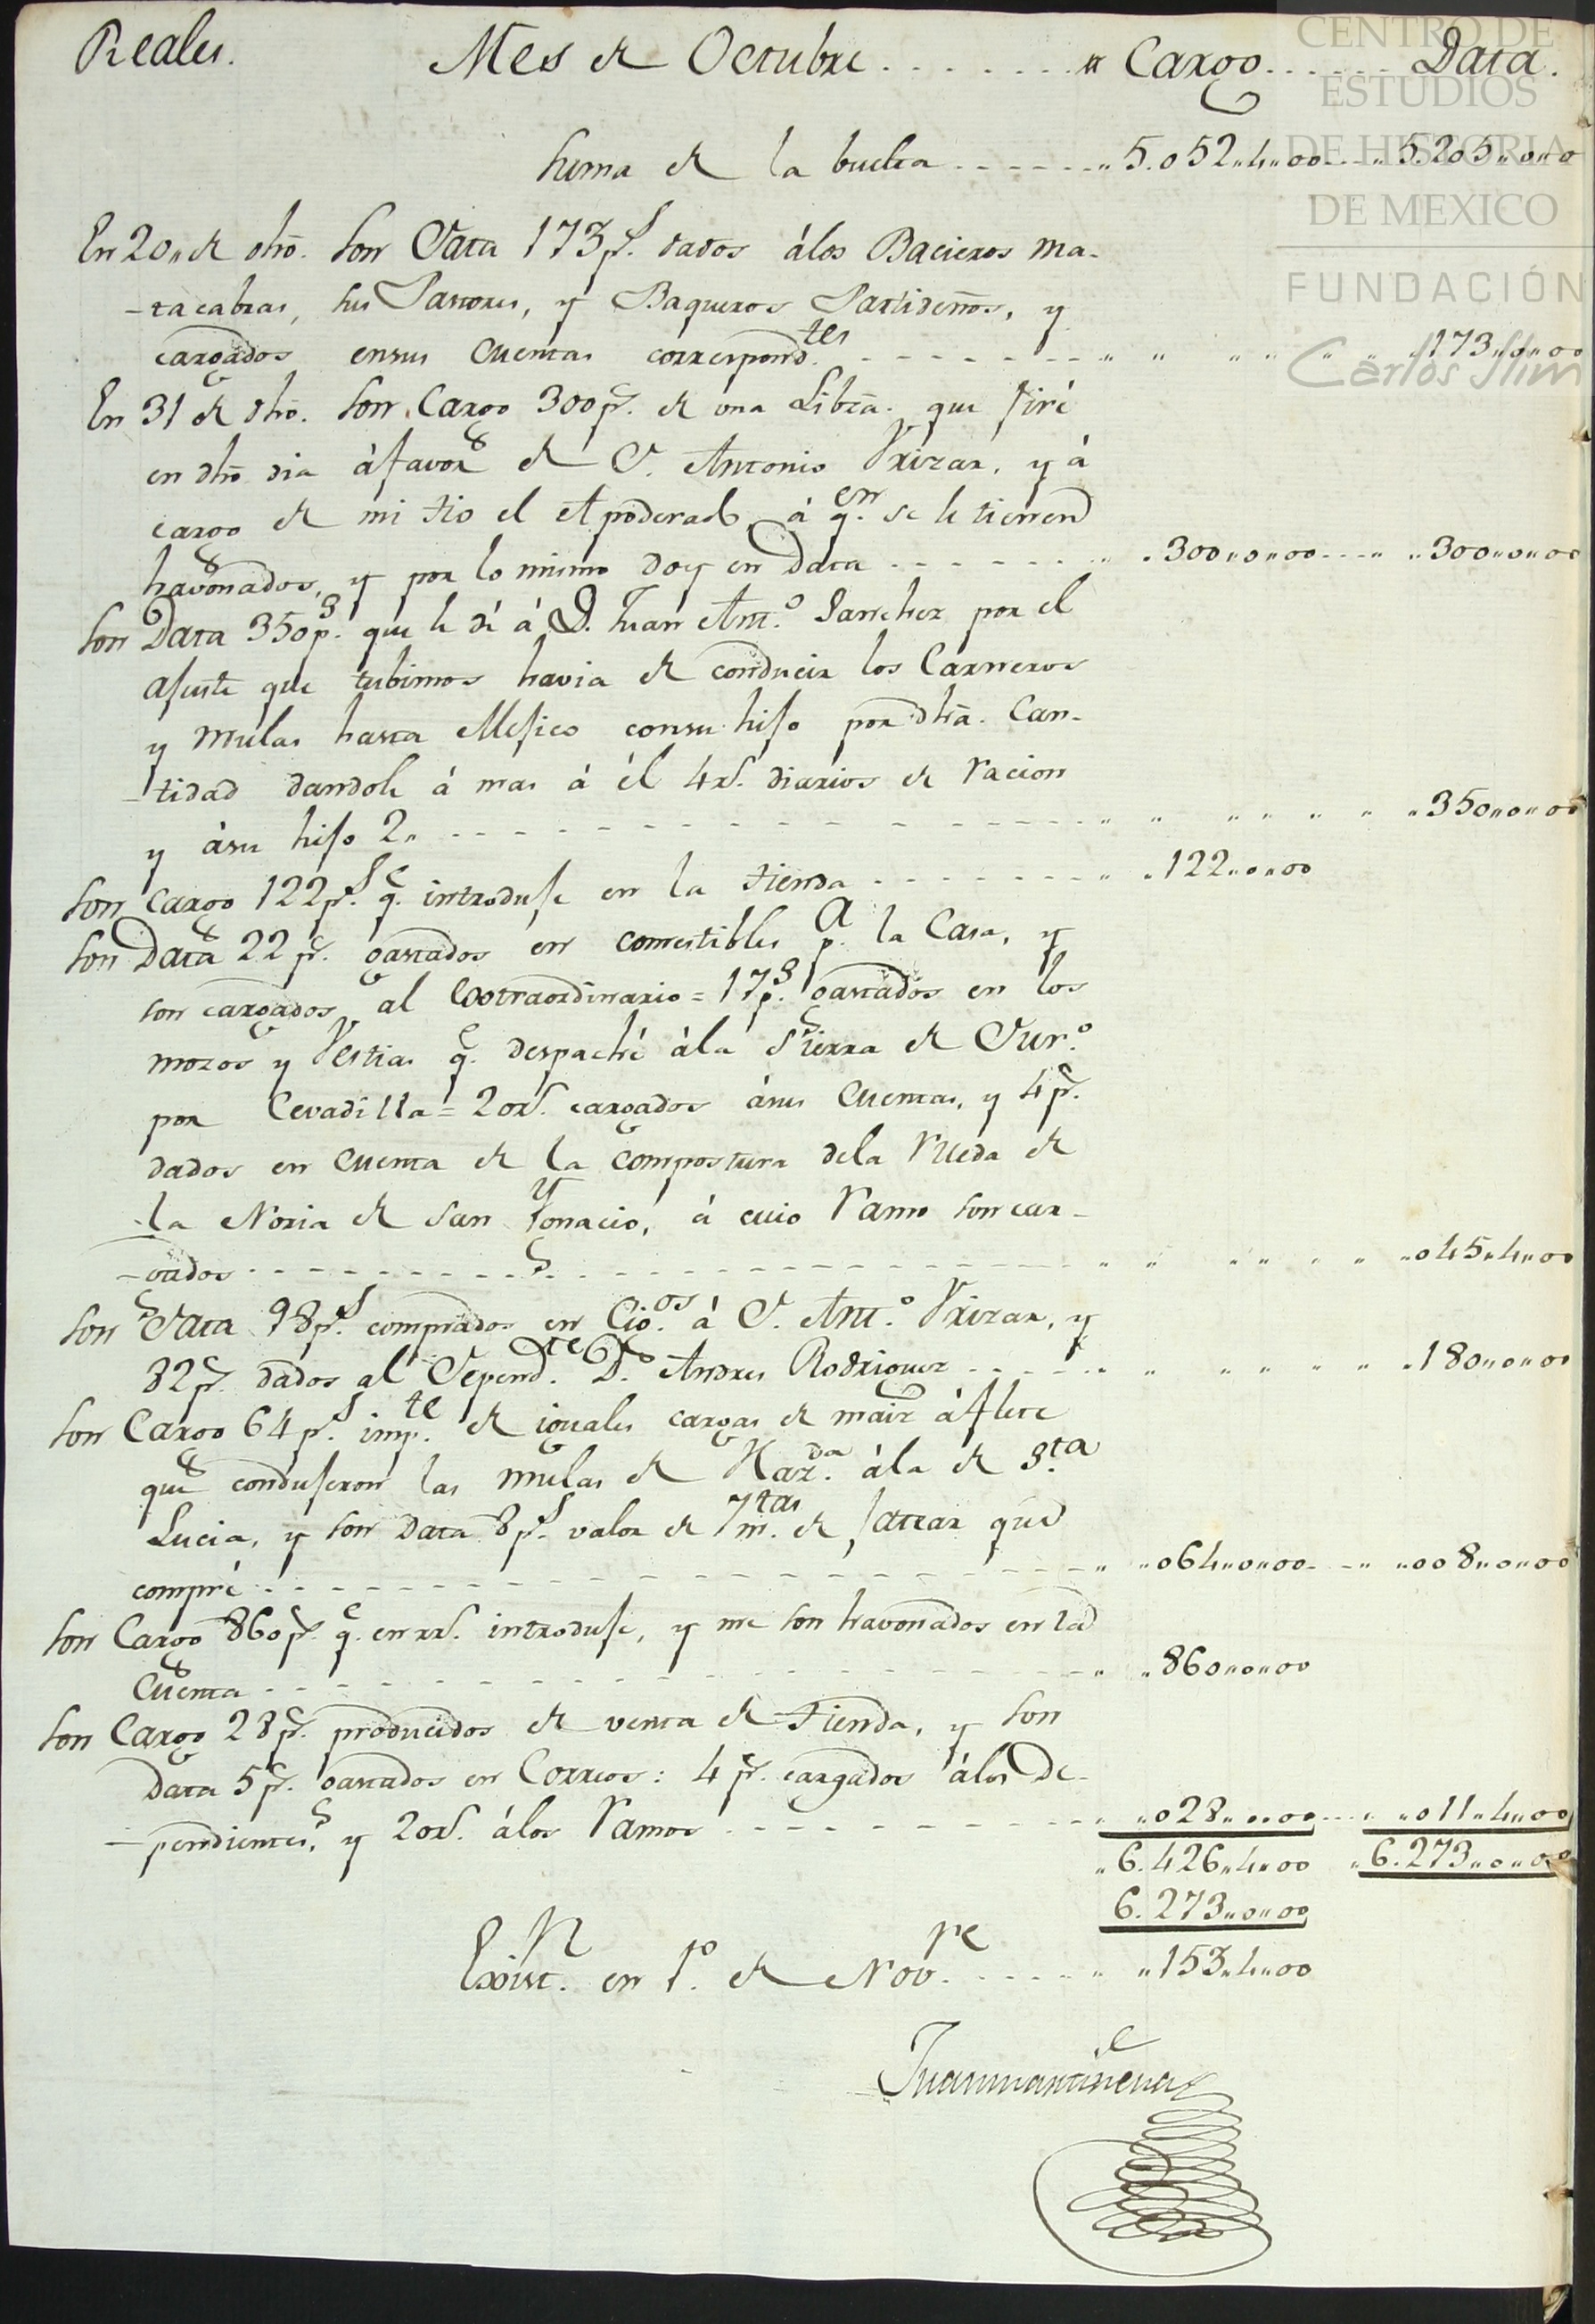 Reales. Mes de Octubre . . . . . . . " Cargo . . . . . . Data.
CENTRO DE
ESTUDIOS
DE HISTORIA
DE MEXICO
FUNDACIÓN
Carlos Slim
Suma de la buelta . . . . . . " 5.052"4"00 . . . " 5.205"0"0
En 20" de dho. Son Data 173p.s dados álos Bacieros Ma-
-tacabras, sus Pastores, y Baqueros Partideños, y
cargados ensus Cuentas correspond.tes . . . . . . . " " " " " " " 173"0"00
En 31 de dho. Son Cargo 300p.s de una Libra. que firé
en dho dia áfavor de D. Antonio Vrizar, y á
cargo de mi tio el Apoderado, á q.en se le tienen
havonados, y por lo mismo doy en Data . . . . . . " " 300"0"00 . . . " " 300"0"00
Son Data 350p.s que le dí á D. Juan Ant.o Sanchez por el
ajuste que tubimos havia de conducir los Carneros
y Mulas hasta Mejico consu hijo por dha. Can-
-tidad dandole á mas á él 4rs. diarios de racion
y ásu hijo 2" . . . . . . . . . . . . . . . . . " " " " " " " 350"0"00
Son Cargo 122p.s q.e introduje en la tienda . . . . . . . " " 122"0"00
Son Data 22p.s gastados en comestibles p.a la Casa, y
son cargados al Extraordinario = 17p.s gastados en los
mozos y Vestias q.e despaché ála Sierra de Dur.o
por Cevadilla = 20rs. cargados ásus Cuentas, y 4p.s
dados en Cuenta de la compostura dela rueda de
la Noria de San Ygnacio, á cuio ramo son car-
-gados . . . . . . . . . . . . . . . . . . . . . " " " " " " " 045"4"00
Son Data 98p.s comprados en Cig.os á D. Ant.o Vrizar, y
82p.s dados al Depend.te D.n Andres Rodriguez . . . . . " " " " " " " 180"0"00
Son Cargo 64p.s imp.te de iguales cargas de maiz áflete
que condujeron las mulas de Haz.da ála de S.ta
Lucia, y son Data 8p.s valor de 7 m.tas de jatear que
compré . . . . . . . . . . . . . . . . . . . . " " 064"0"00 . . . " " 008"0"00
Son Cargo 860p.s q.e en rrs. introduje, y me son havonados en la
Cuenta . . . . . . . . . . . . . . . . . . . . " " 860"0"00
Son Cargo 28p.s producidos de venta de tienda, y son
Data 5p.s gastados en Correos: 4p.s cargados álos De-
-pendientes, y 20rs. álos ramos . . . . . . . . . . " " 028"0"00 . . . " " 011"4"00
" 6.426"4"00 " 6.273"0"00
6.273"0"00
Exist.n en 1.o de Nov.re . . . . . " " 153"4"00
Juan Martinena